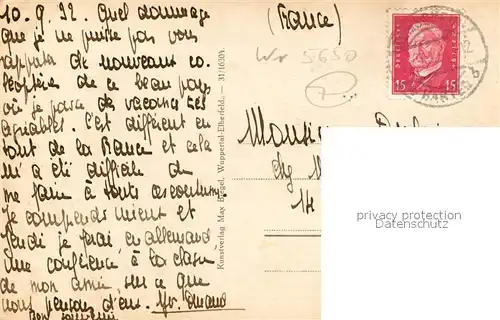 10.9.32. Quel dommage
que je ne puisse pas vous
rapporter de nouveaux co
léoptères de ce beau pays
où je passe des vacances très
agréables. C'est différent en
tout de la France et cela
m'a été difficile de
me faire à toutes ces coutumes
je comprends mieux et
jeudi je ferai en allemand
une conférence à la classe
de mon amie, sur ce que
nous pensons d'eux.
Bon souvenir
Kunstverlag Max Biegel, Wuppertal-Elberfeld. — 31/1630h
(France)
Wr 5650
DEUTSCHES REICH
15 15
Monsieur
privacy protection
Datenschutz